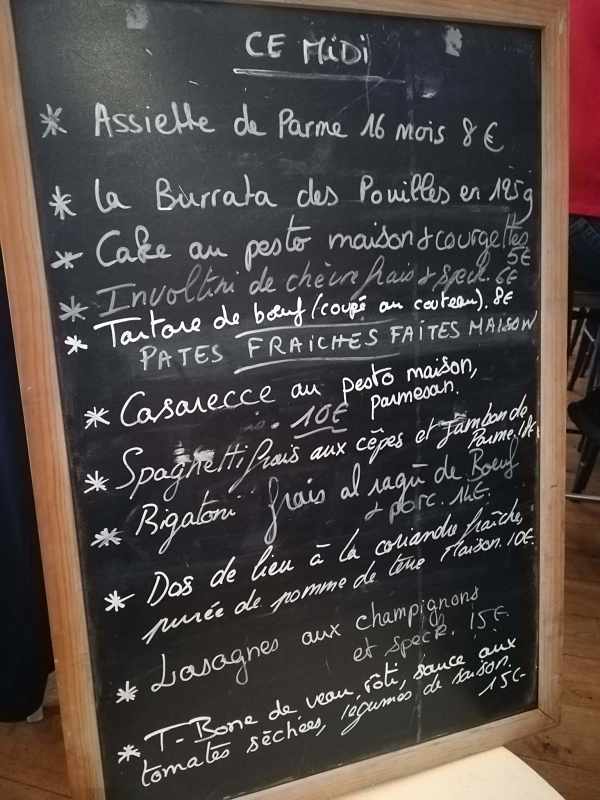 CE MiDi
* Assiette de Parme 16 mois 8 €
* La Burrata des Pouilles en 125g
* Cake au pesto maison & courgettes
5€
* Involtini de chèvre frais & speck. 6€
* Tartare de bœuf (coupé au couteau). 8€
PATES FRAICHES FAITES MAISON
* Casarecce au pesto maison,
parmesan.
10€
* Spaghetti frais aux cêpes et Jambon de
Parme.
* Rigatoni frais al ragù de Bœuf
& porc. 14€.
* Dos de lieu à la coriandre fraîche,
purée de pomme de terre Maison. 10€.
* Lasagnes aux champignons
et speck. 15€.
* T-Bone de veau, rôti, sauce aux
tomates séchées, légumes de saison.
15€